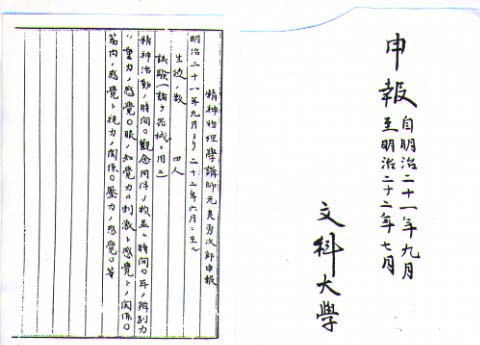 申報 自明治二十一年九月
至明治二十二年七月
文科大學
精神物理學講師元良勇次郎申報
明治二十一年九月ヨリ二十二年六月ニ至ル
生徒ノ数 四人
試験(諸ノ器械ヲ用ユ)
精神活動ノ時間○觀念同伴ノ時間○耳ノ辨別力
○重力ノ感覺○眼ノ知覺力○刺激ト感覺トノ関係○
筋肉ノ感覺ト視力ノ関係○壓力ノ感覺○等